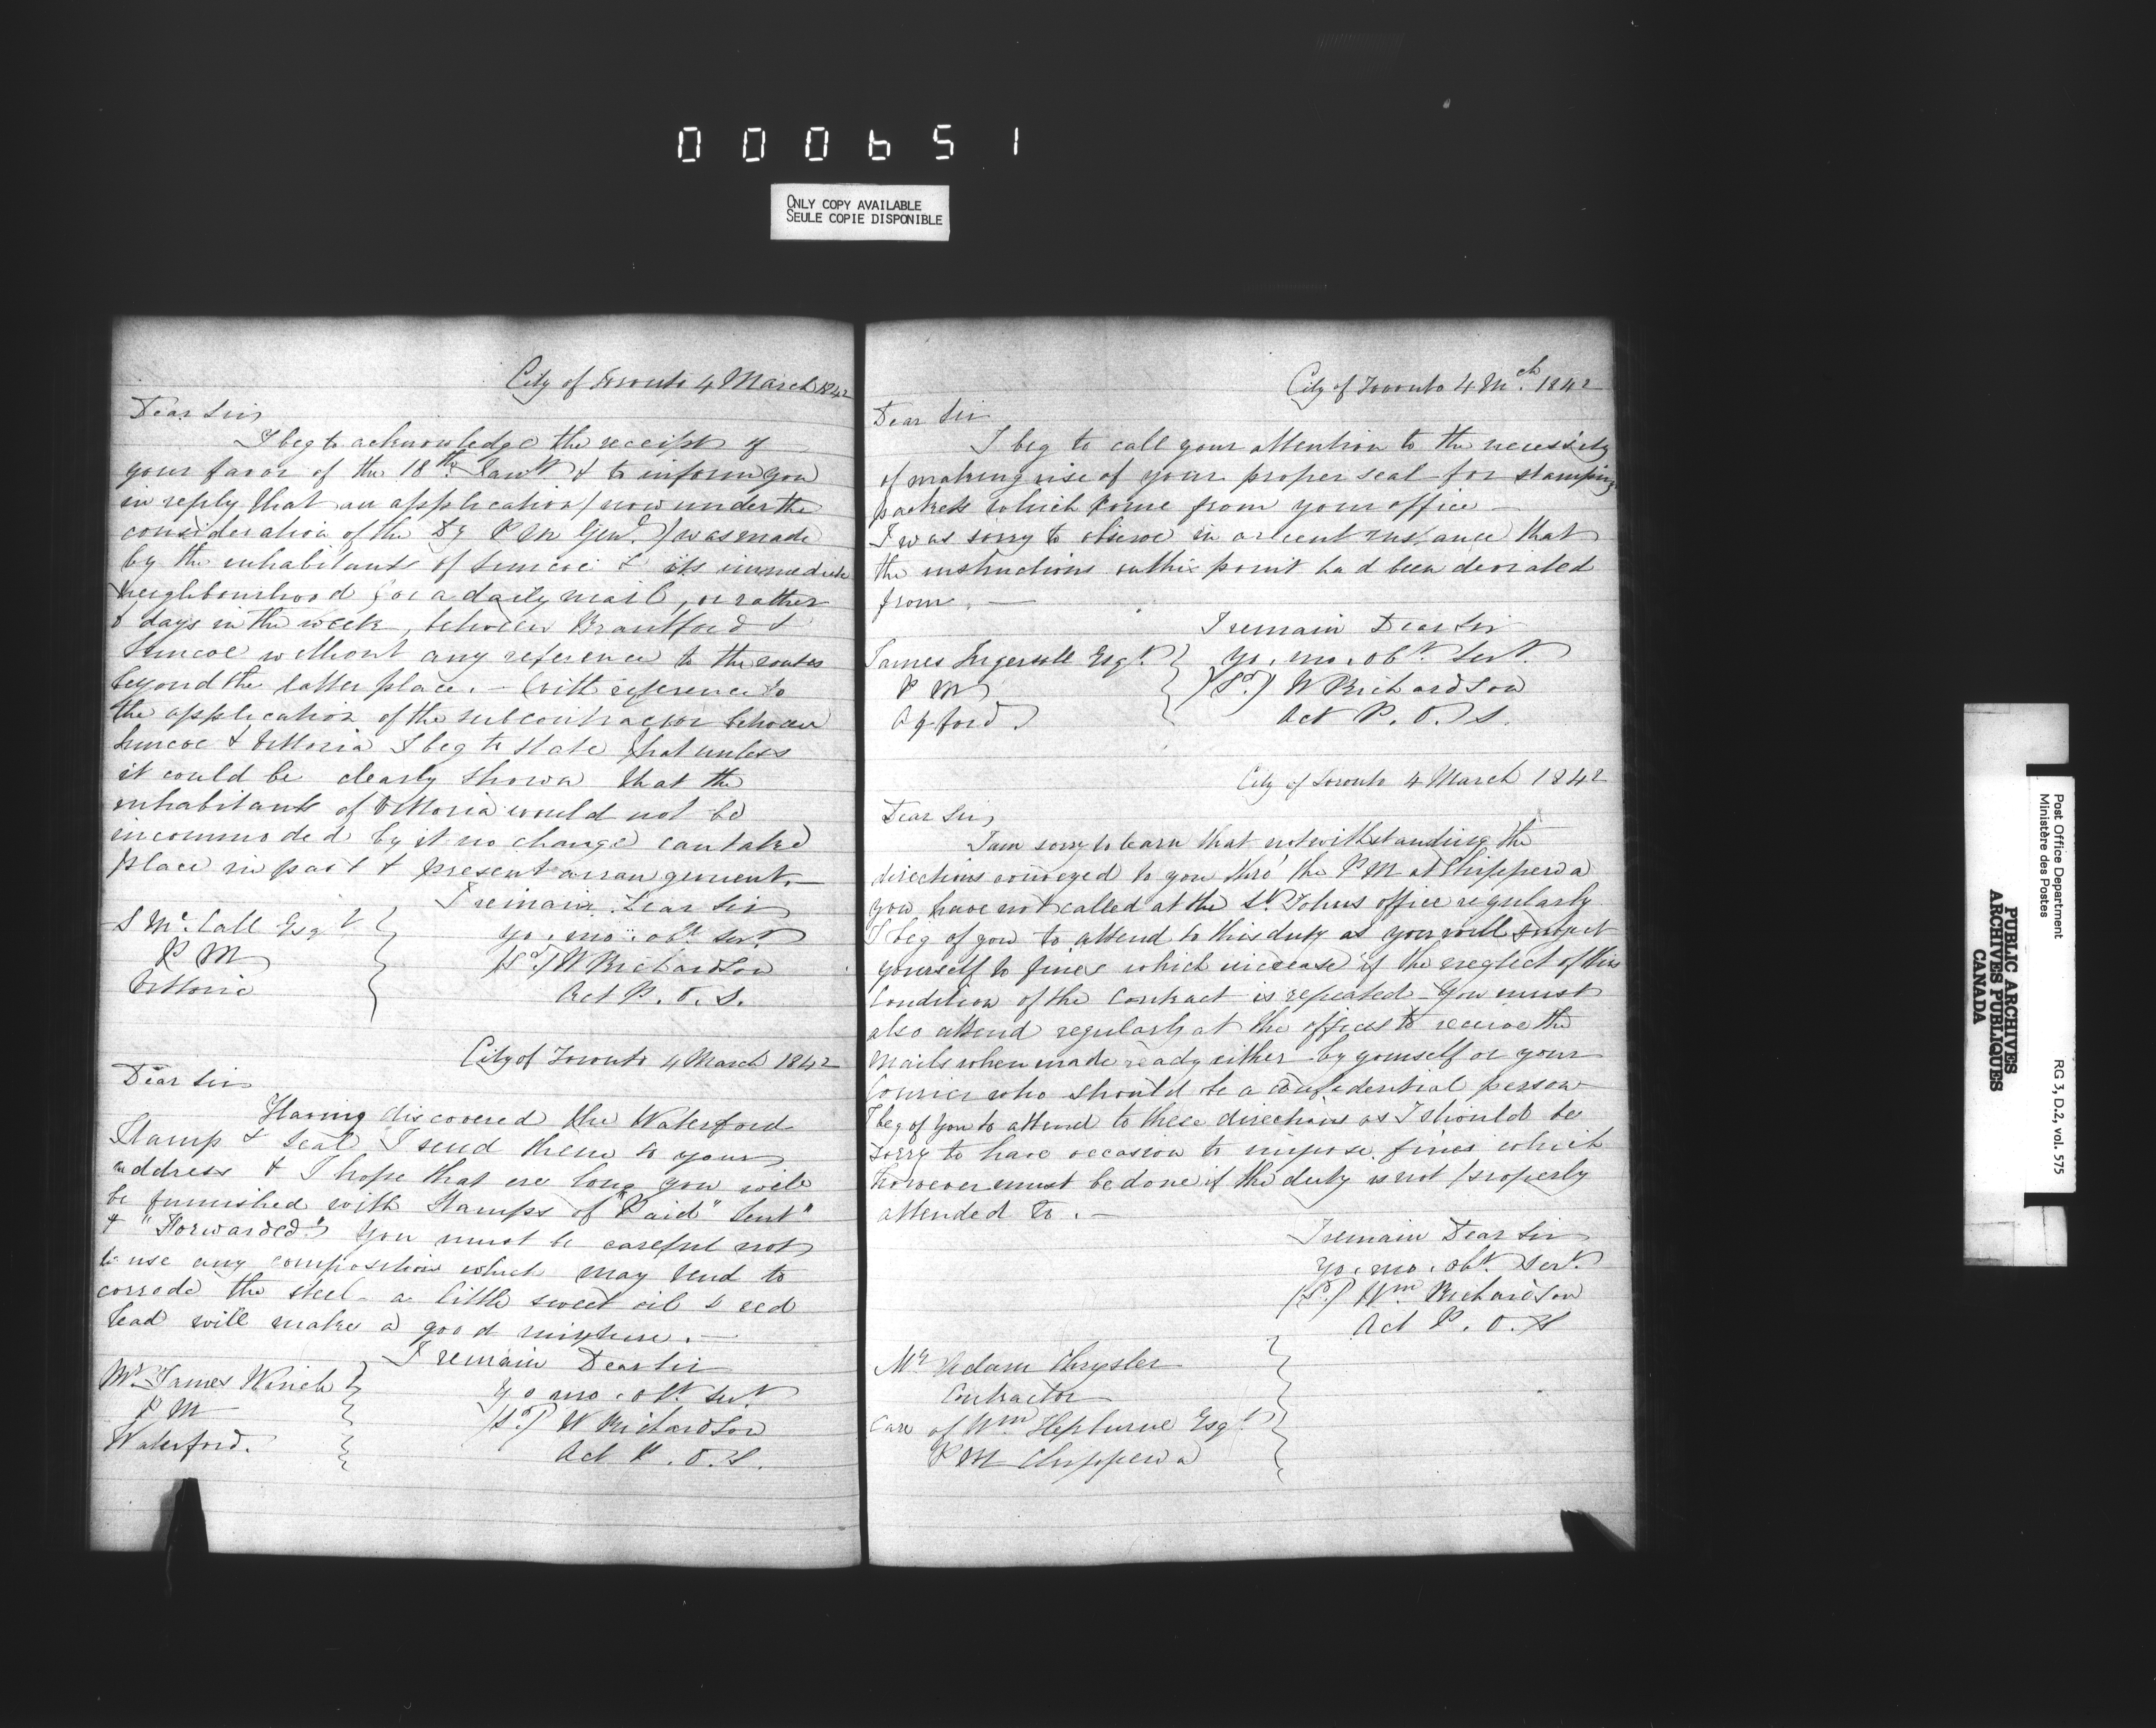 000651
ONLY COPY AVAILABLE
SEULE COPIE DISPONIBLE
City of Toronto 4 March 1842
Dear Sir,
I beg to acknowledge the receipt of
your favor of the 18th Janry & to inform you
in reply that an application (now under the
consideration of the Dy P M Genl.) was made
by the inhabitants of Simcoe & its immediate
neighbourhood for a daily mail, or rather
days in the week, between Brantford &
Simcoe without any reference to the routes
beyond the latter place. - With reference to
the application of the subcontractor between
Simcoe & Vittoria I beg to state that unless
it could be clearly shown that the
inhabitants of Vittoria would not be
incommoded by it no change can take
place in past & present arrangement. -
I remain Dear Sir
S Mc. Call Esqr
yo. mo. obt. servt.
P M
(Sd) W Richardson
Vittoria
Act P. O. S.
City of Toronto 4 March 1842
Dear Sir
Having discovered the Waterford
Stamp & Seal I send them to your
address & I hope that ere long you will
be furnished with Stamps of "Paid" Sent"
& "Forwarded" You must be careful not
to use any composition which may tend to
corrode the steel - a little sweet oil & red
lead will make a good mixture. -
I remain Dear Sir
Mr. James Winch
yo mo. obt. servt
P M
(Sd) W Richardson
Waterford.
Act P. O. S.
City of Toronto 4 Mch. 1842
Dear Sir
I beg to call your attention to the necessity
of making use of your proper seal for stamping
packets which come from your office -
I was sorry to observe in a recent instance that
the instructions on this point had been deviated
from. -
I remain Dear Sir
James Ingersoll Esqr.
yo. mo. obt. servt.
P M
(Sd) W Richardson
Oxford
Act P. O. S.
City of Toronto 4 March 1842
Dear Sir,
I am sorry to learn that notwithstanding the
directions conveyed to you thro' the P M at Chippewa
you have not called at the St. Johns office regularly
I beg of you to attend to this duty as you will subject
yourself to fines which increase if the neglect of this
condition of the contract is repeated - You must
also attend regularly at the offices to receive the
mails when made ready either by yourself or your
Courier who should be a confidential person
I beg of you to attend to these directions as I should be
sorry to have occasion to impose fines which
however must be done if the duty is not properly
attended to. -
I remain Dear Sir
yo. mo. obt. servt.
(Sd) Wm Richardson
Act P. O. S
Mr Adam Chrysler
Contractor
Care of Wm Hepburne Esqr
P M Chippewa
Post Office Department
Ministère des Postes
RG 3, D.2, vol. 575
PUBLIC ARCHIVES
ARCHIVES PUBLIQUES
CANADA